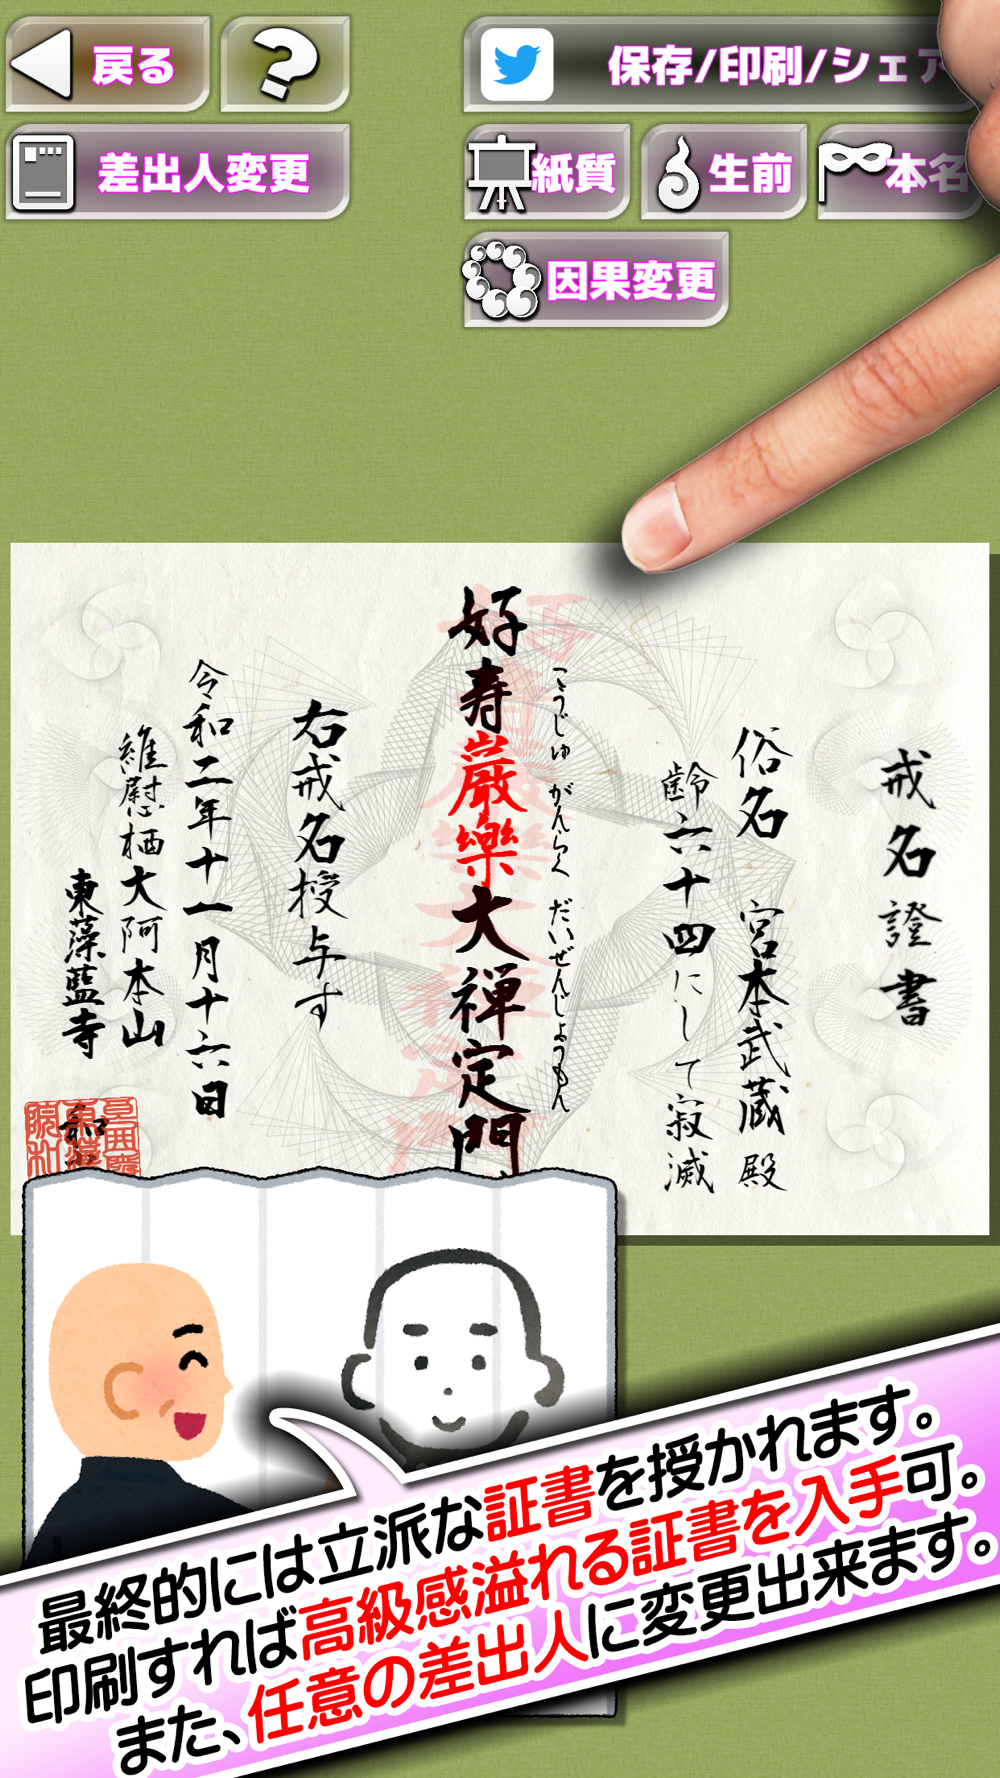 戻る
?
保存/印刷/シェア
差出人変更
紙質
生前
本名
因果変更
戒名證書
俗名 宮本武蔵殿
齢六十四にして寂滅
こうじゅ がんらく だいぜんじょうもん
好寿巌樂大禅定門
右戒名授与す
令和二年十一月十六日
維慰栖大阿本山
東藻藍寺
最終的には立派な証書を授かれます。
印刷すれば高級感溢れる証書を入手可。
また、任意の差出人に変更出来ます。